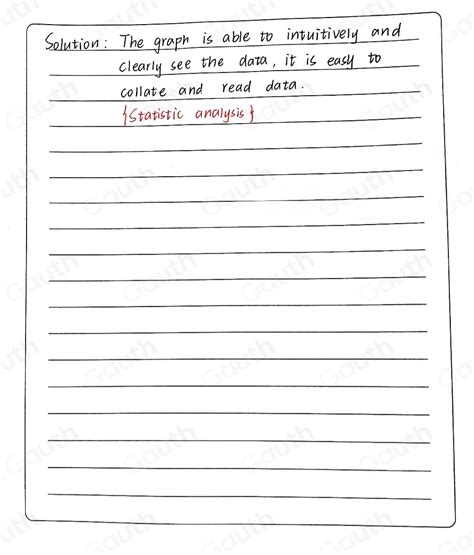 Solution: The graph is able to intuitively and
clearly see the data, it is easy to
collate and read data.
{Statistic analysis}